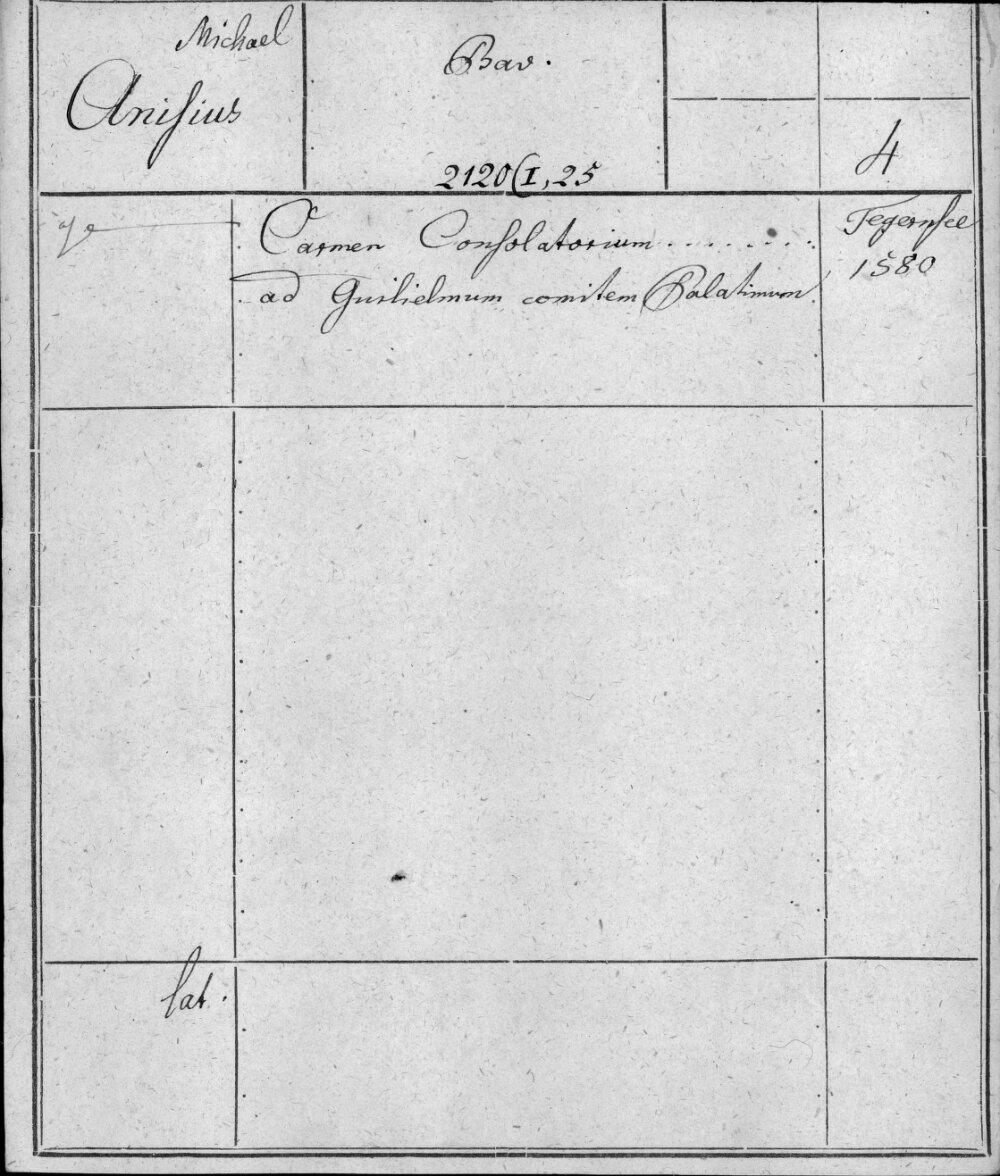 Michael
Anisius
Bav.
2120(I, 25
4
Carmen Consolatorium . . . . . . . .
ad Guilielmum comitem Palatinum
Tegernsee
1580
lat.